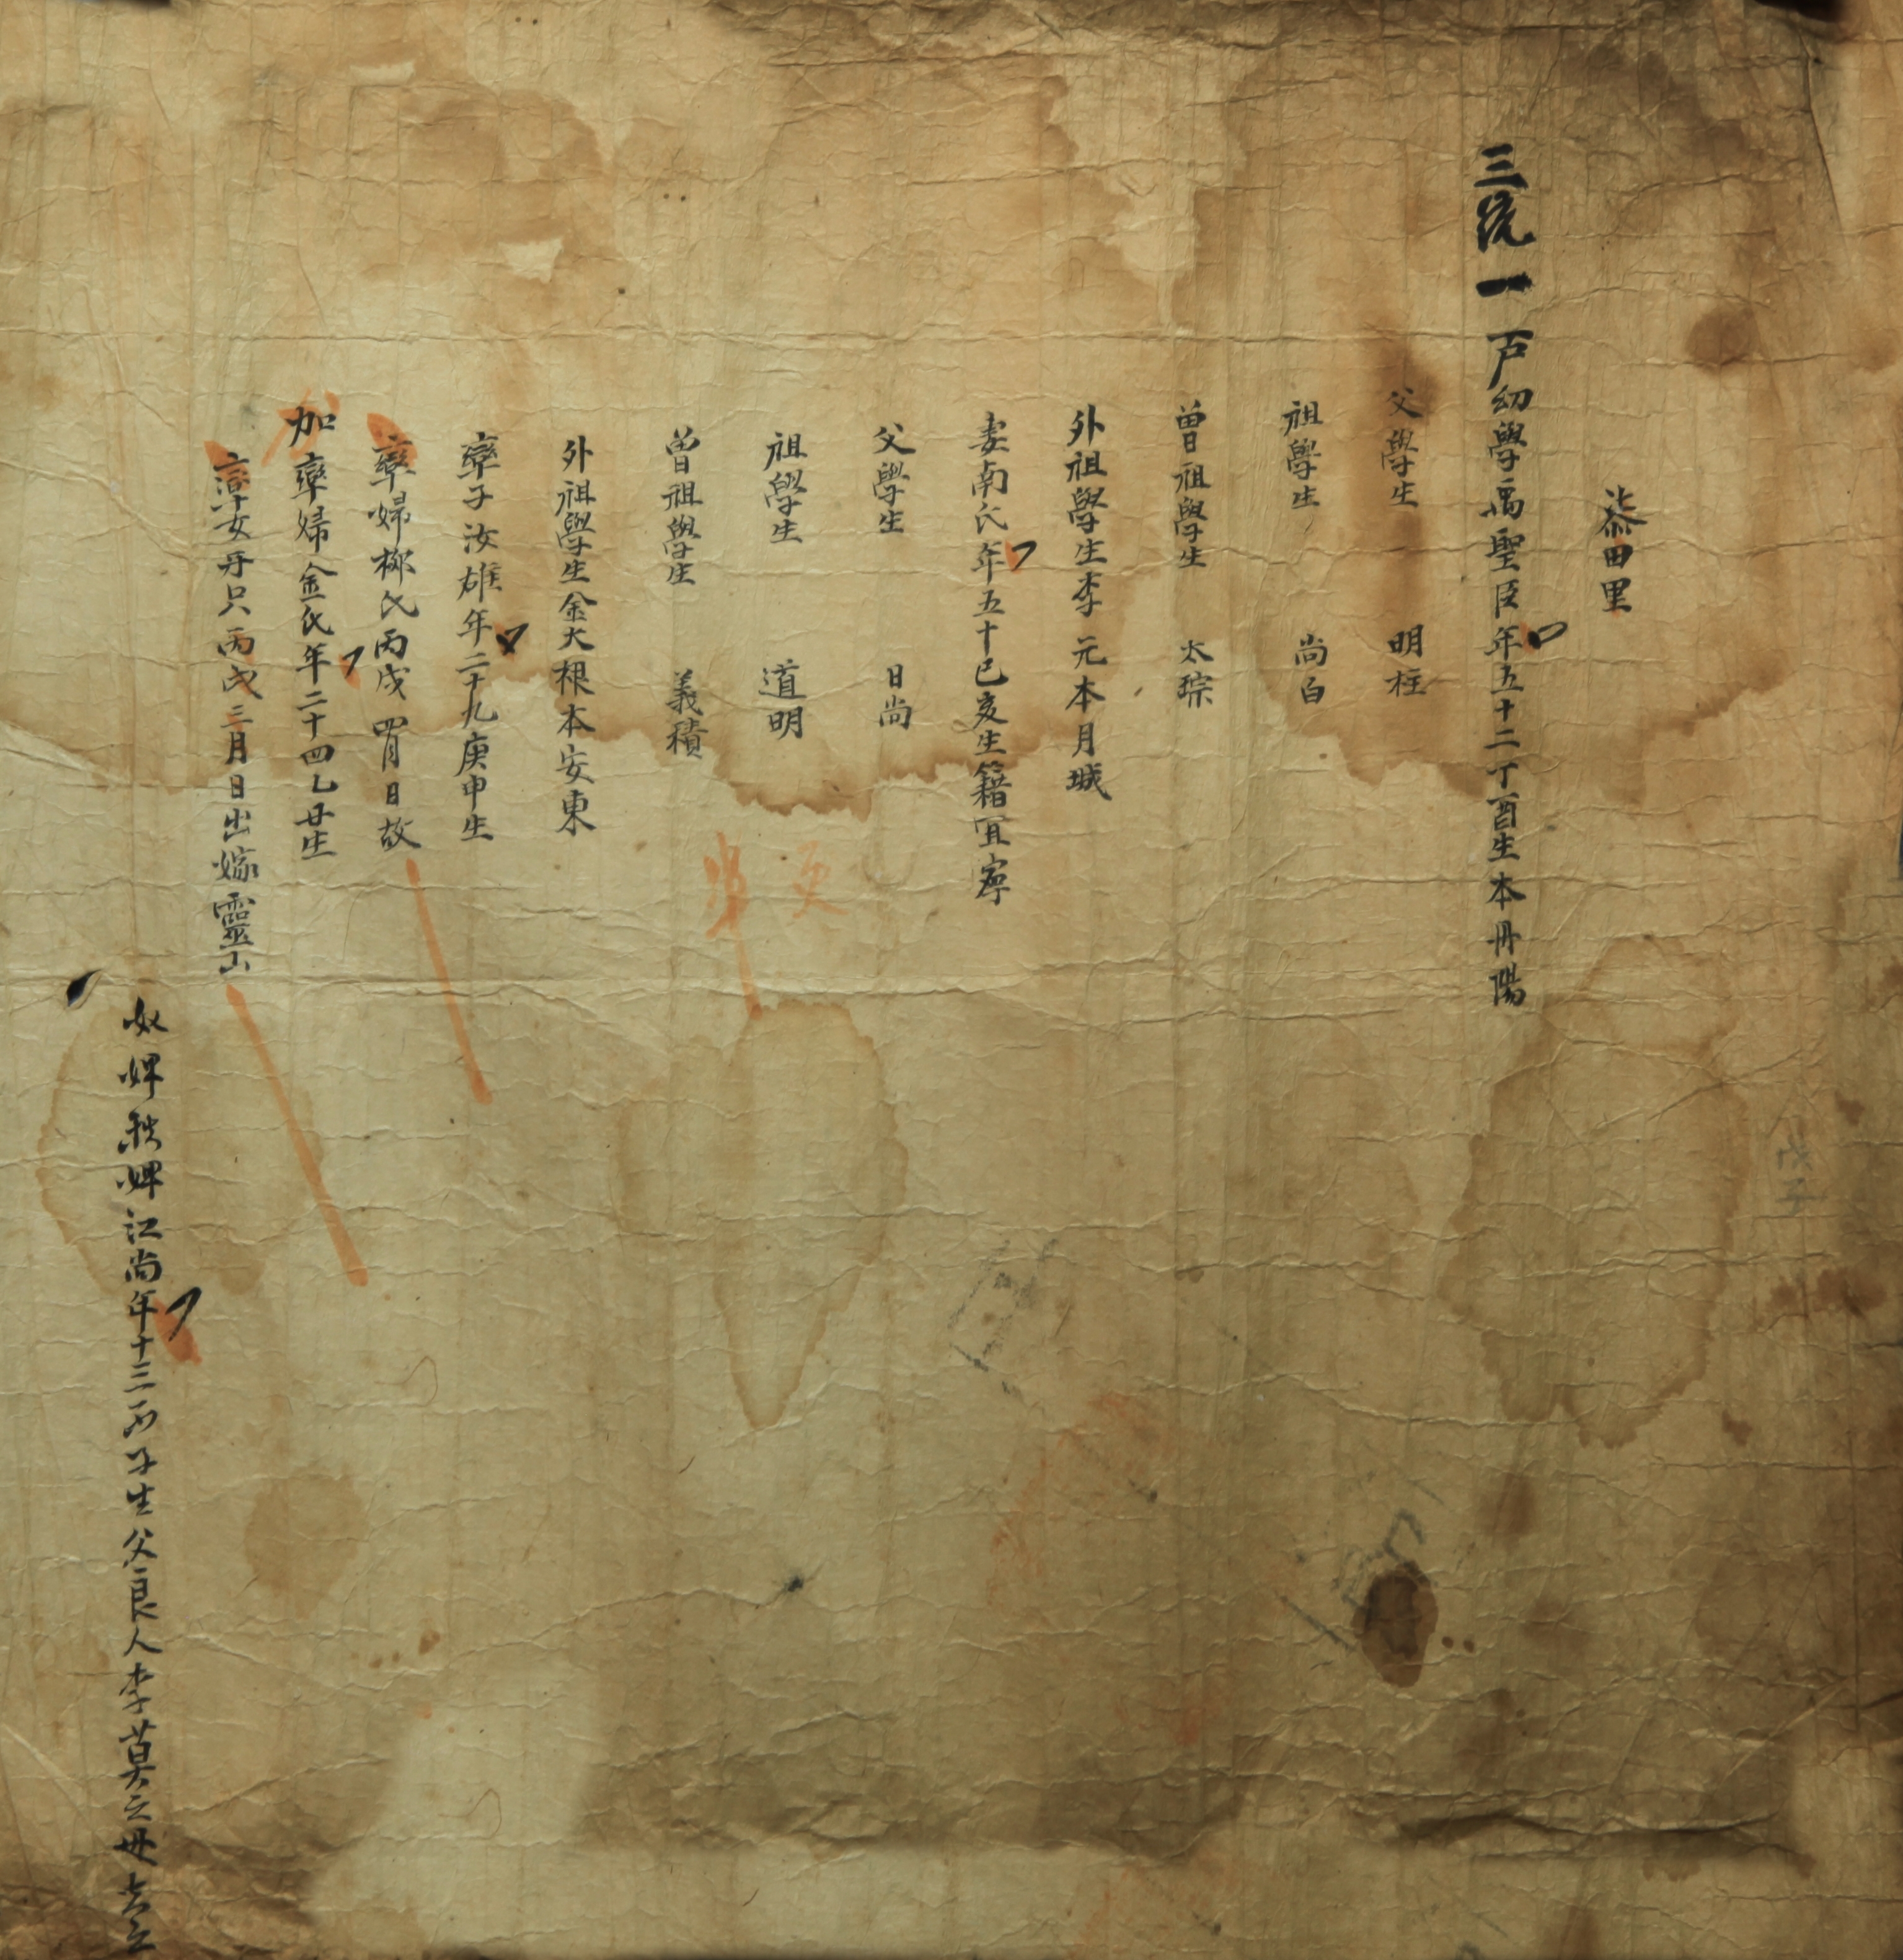 柒田里
三統一戶幼學禹聖臣年五十二丁酉生本丹陽
父學生 明柱
祖學生 尚白
曾祖學生 太琮
外祖學生李元本月城
妻南氏年五十己亥生籍宜寧
父學生 日尚
祖學生 道明
曾祖學生 義積
外祖學生金大根本安東
率子汝雄年二十九庚申生
率婦柳氏丙戌四月日故
加率婦金氏年二十四乙丑生
率女丹只丙戌三月日出嫁靈山
奴婢秩婢江尚年十三丙子生父良人李莫立母古立